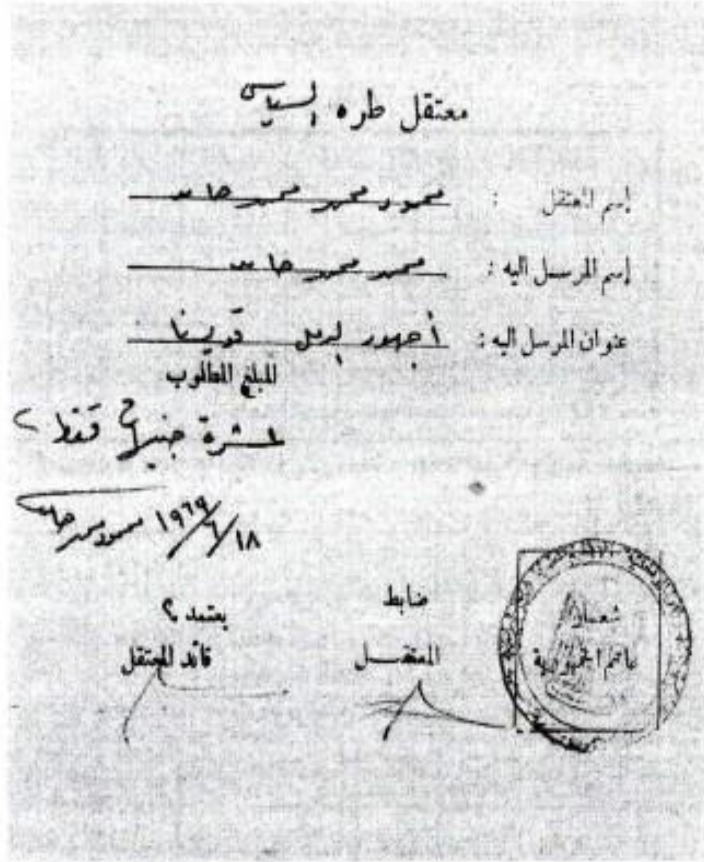 معتقل طره السياسى
إسم المعتقل : محمود محمد محمد حامد
إسم المرسل اليه : محمد محمد حامد
عنوان المرسل اليه : أجهور الرمل قويسنا
المبلغ المطلوب
عشرة جنيهات فقط
١٩٦٩/٦/١٨ محمود محمد حامد
ضابط
المعتقـــل
يعتمد ؟
قائد المعتقل
شعـــار
خاتم الجمهورية